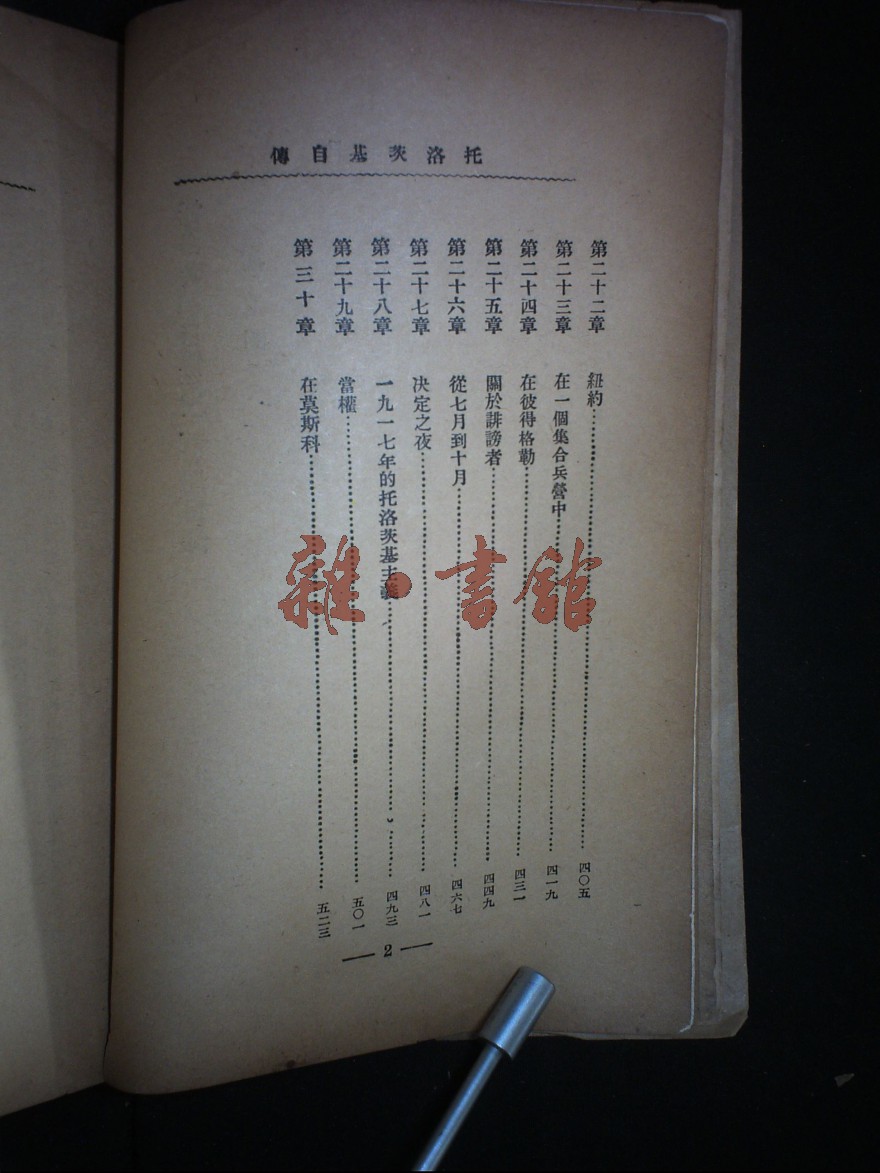 托洛茨基自傳
第二十二章 紐約……四〇五
第二十三章 在一個集合兵營中……四一九
第二十四章 在彼得格勒……四三一
第二十五章 關於誹謗者……四四九
第二十六章 從七月到十月……四六七
第二十七章 决定之夜……四八一
第二十八章 一九一七年的托洛茨基主義……四九三
第二十九章 當權……五〇一
第三十章 在莫斯科……五二三
— 2 —
雜·書館